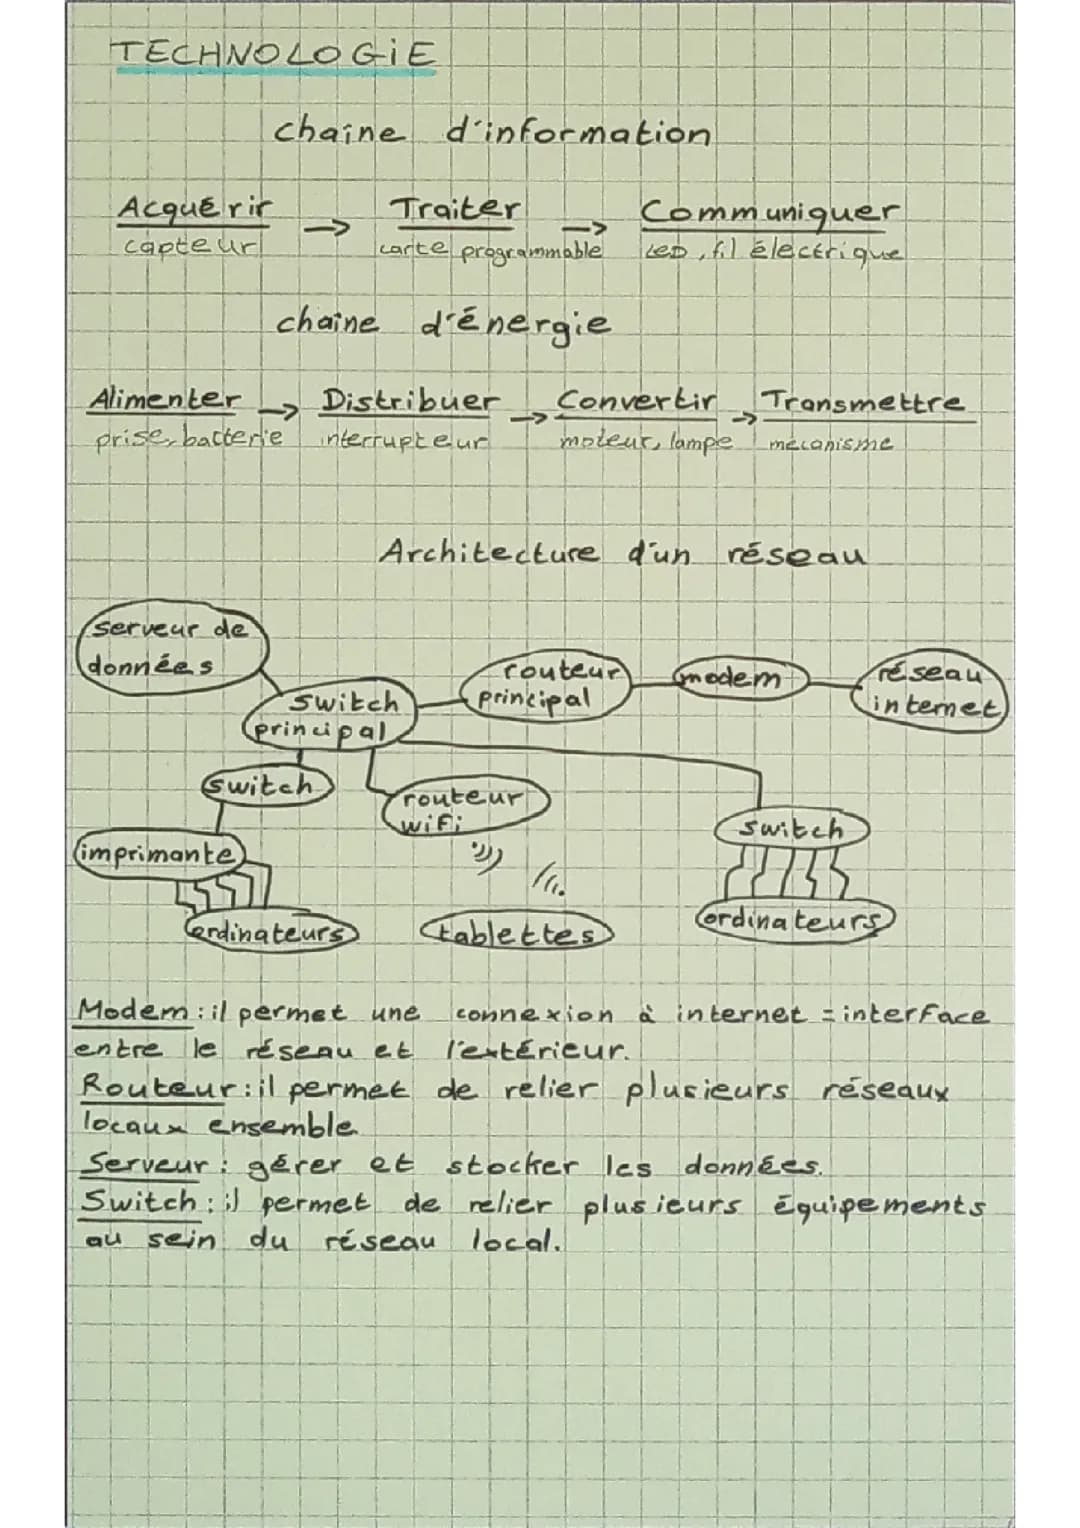 TECHNOLOGiE
chaîne d'information
Acquérir → Traiter → Communiquer
capteur carte programmable LED, fil électrique
chaîne d'énergie
Alimenter → Distribuer → Convertir → Transmettre
prise, batterie interrupteur moteur, lampe mécanisme
Architecture d'un réseau
serveur de
données
switch
principal
routeur
principal
modem
réseau
internet
switch
routeur
wifi
switch
imprimante
ordinateurs
tablettes
ordinateurs
Modem : il permet une connexion à internet = interface
entre le réseau et l'extérieur.
Routeur : il permet de relier plusieurs réseaux
locaux ensemble
Serveur : gérer et stocker les données.
Switch : il permet de relier plusieurs équipements
au sein du réseau local.